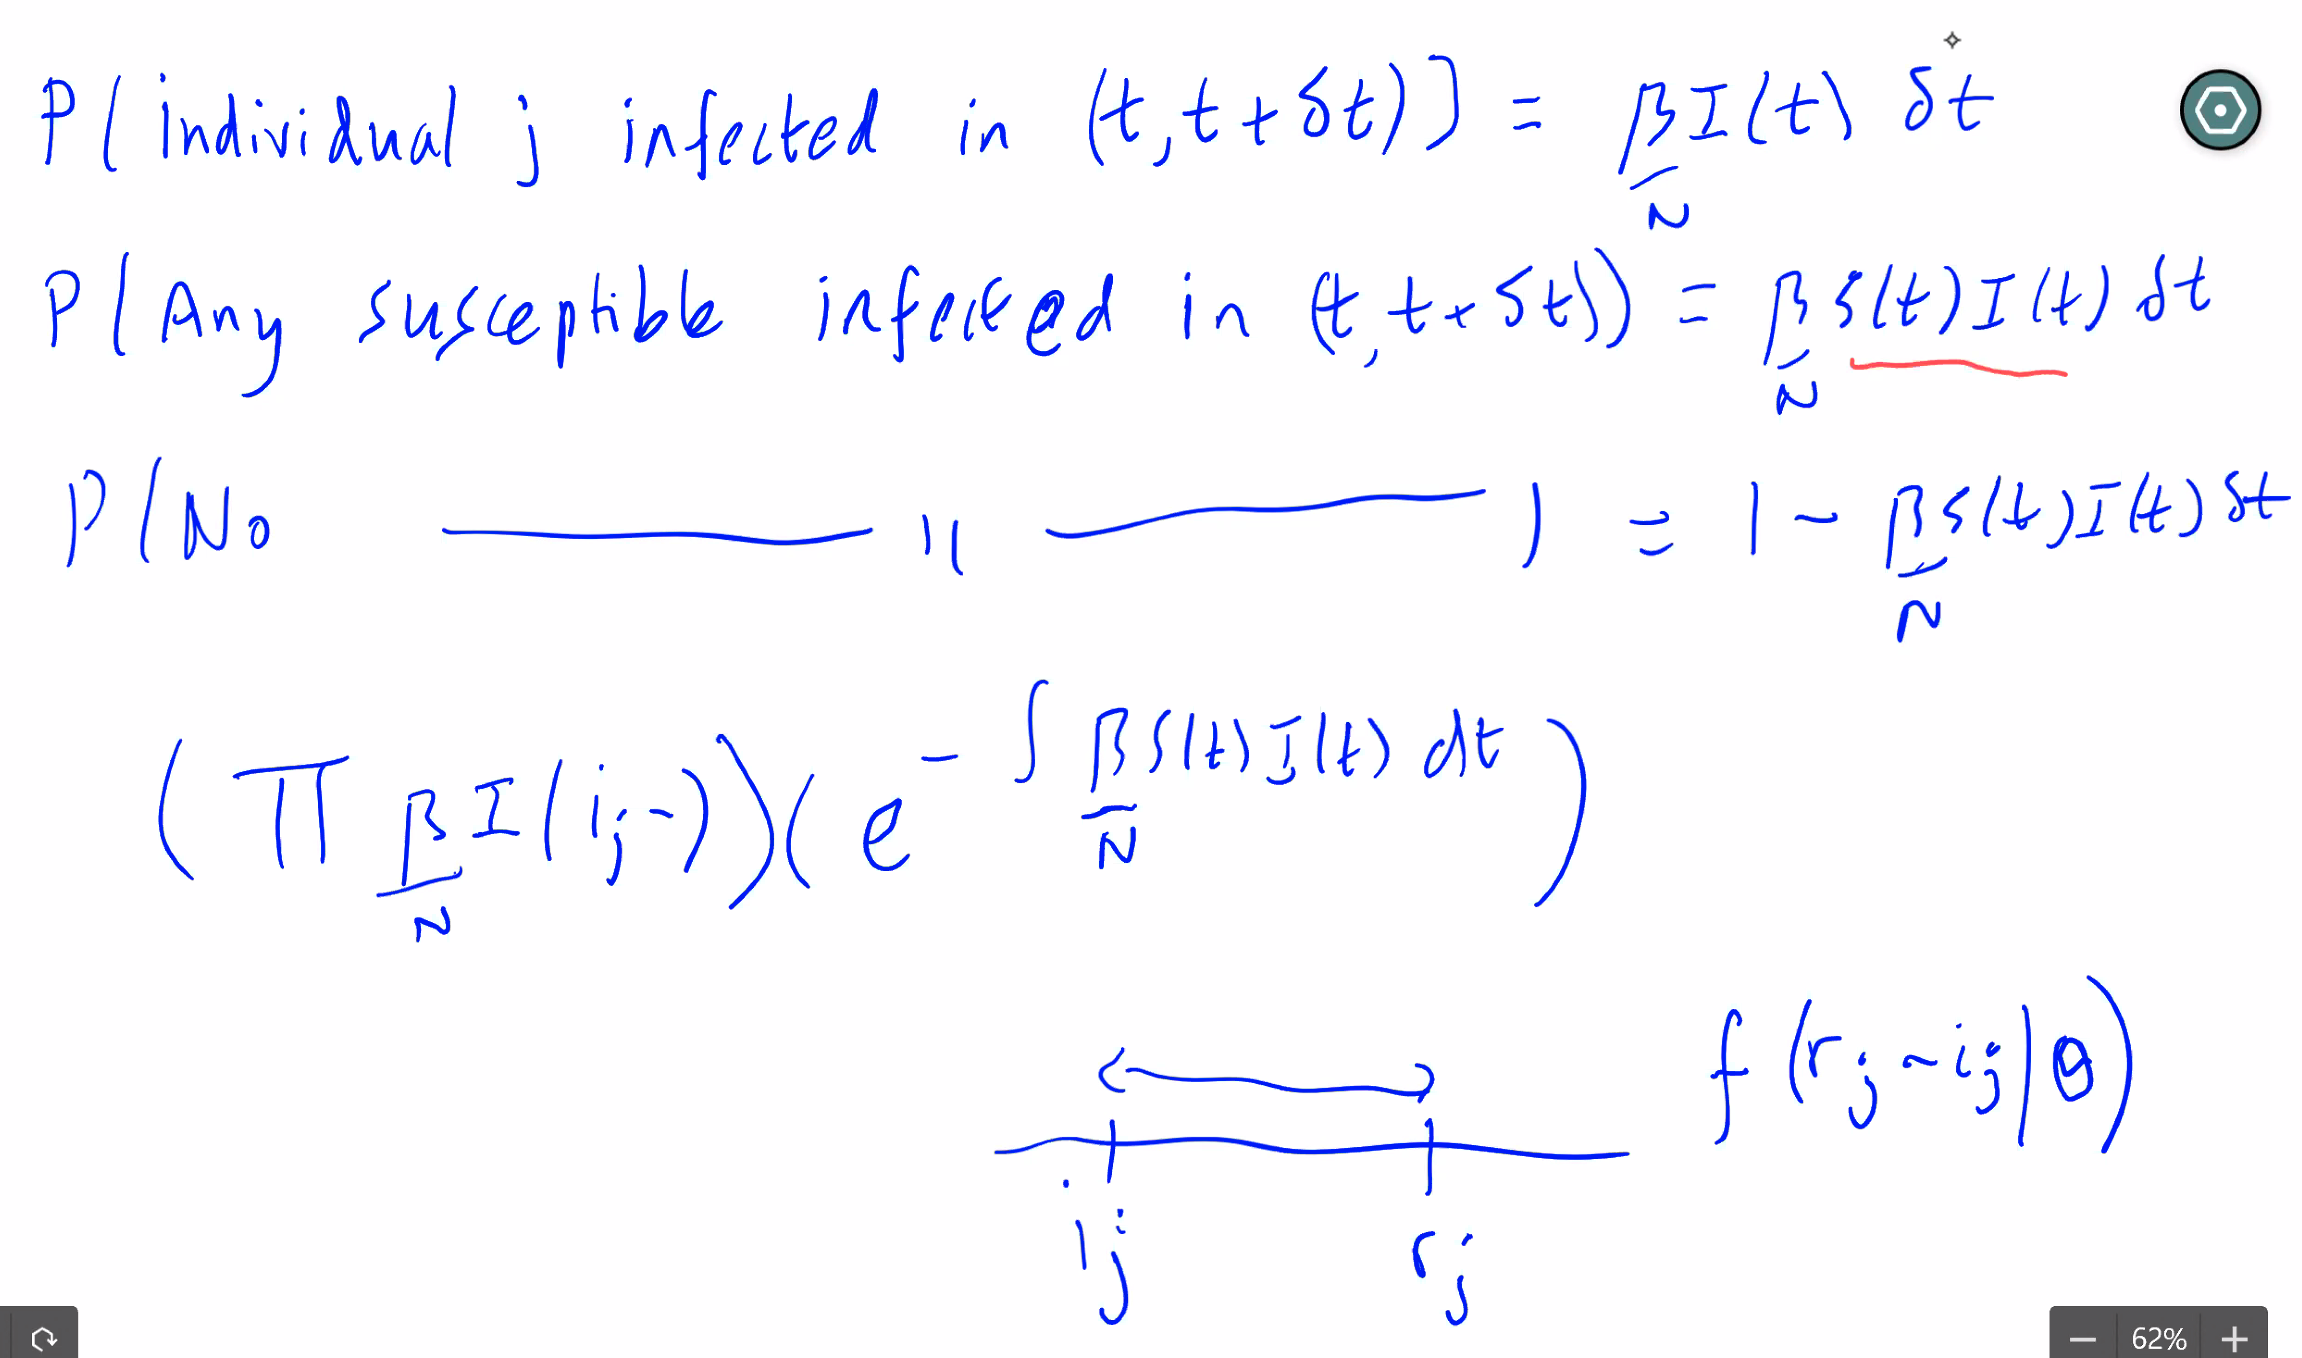 P( individual j infected in (t, t + δt)) = β/N I(t) δt
P( Any susceptible infected in (t, t + δt)) = β/N S(t) I(t) δt
P( No —— " —— ) = 1 - β/N S(t) I(t) δt
( ∏ β/N I(i_j -) ) ( e^{- ∫ β/N S(t) I(t) dt} )
f (r_j - i_j | θ)
i_j r_j
62%